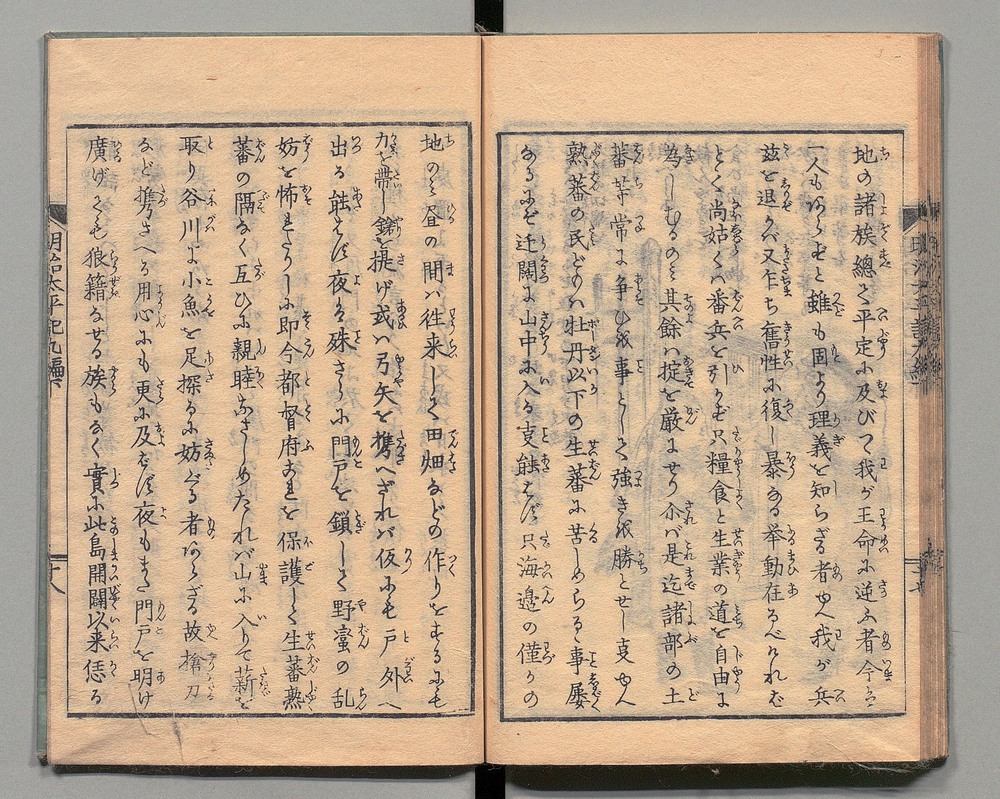 地の諸族總て平定に及びて我が王命に逆ふ者今ハ
一人もあらずと雖も固より理義を知らざる者ゆへ我が兵
茲を退かバ又乍ち奮性に復し暴なる挙動在るべけれど
とて尚姑くハ番兵を引かず只糧食と生業の道を自由に
為しむるのミ其餘ハ掟を厳にせり尒バ是迄諸部の土
蕃等常に争ひを事として強きを勝とせし叓ゆへ
熟蕃の民どもハ牡丹以下の生蕃に苦しめらるゝ事屡
なるにぞ迂闊に山中に入る叓能はず只海邊の僅かの
地のミ昼の間ハ往来して田畑などの作りをするにも
刀を帯し鎗を提げ或ハ弓矢を携へざれバ仮にも戸外へ
出る能はず夜ハ殊さらに門戸を鎖して野蛮の乱
妨を怖れたりしに即今都督府あれを保護して生蕃熟
蕃の隔なく互ひに親睦なさしめたれバ山に入りて薪を
取り谷川に小魚を足探るに妨ぐる者あらざる故槍刀
など携さへる用心にも更に及ばず夜もまた門戸を明け
廣げても狼籍なせる族もなく實に此島開闢以来恁る
明治太平記九編下